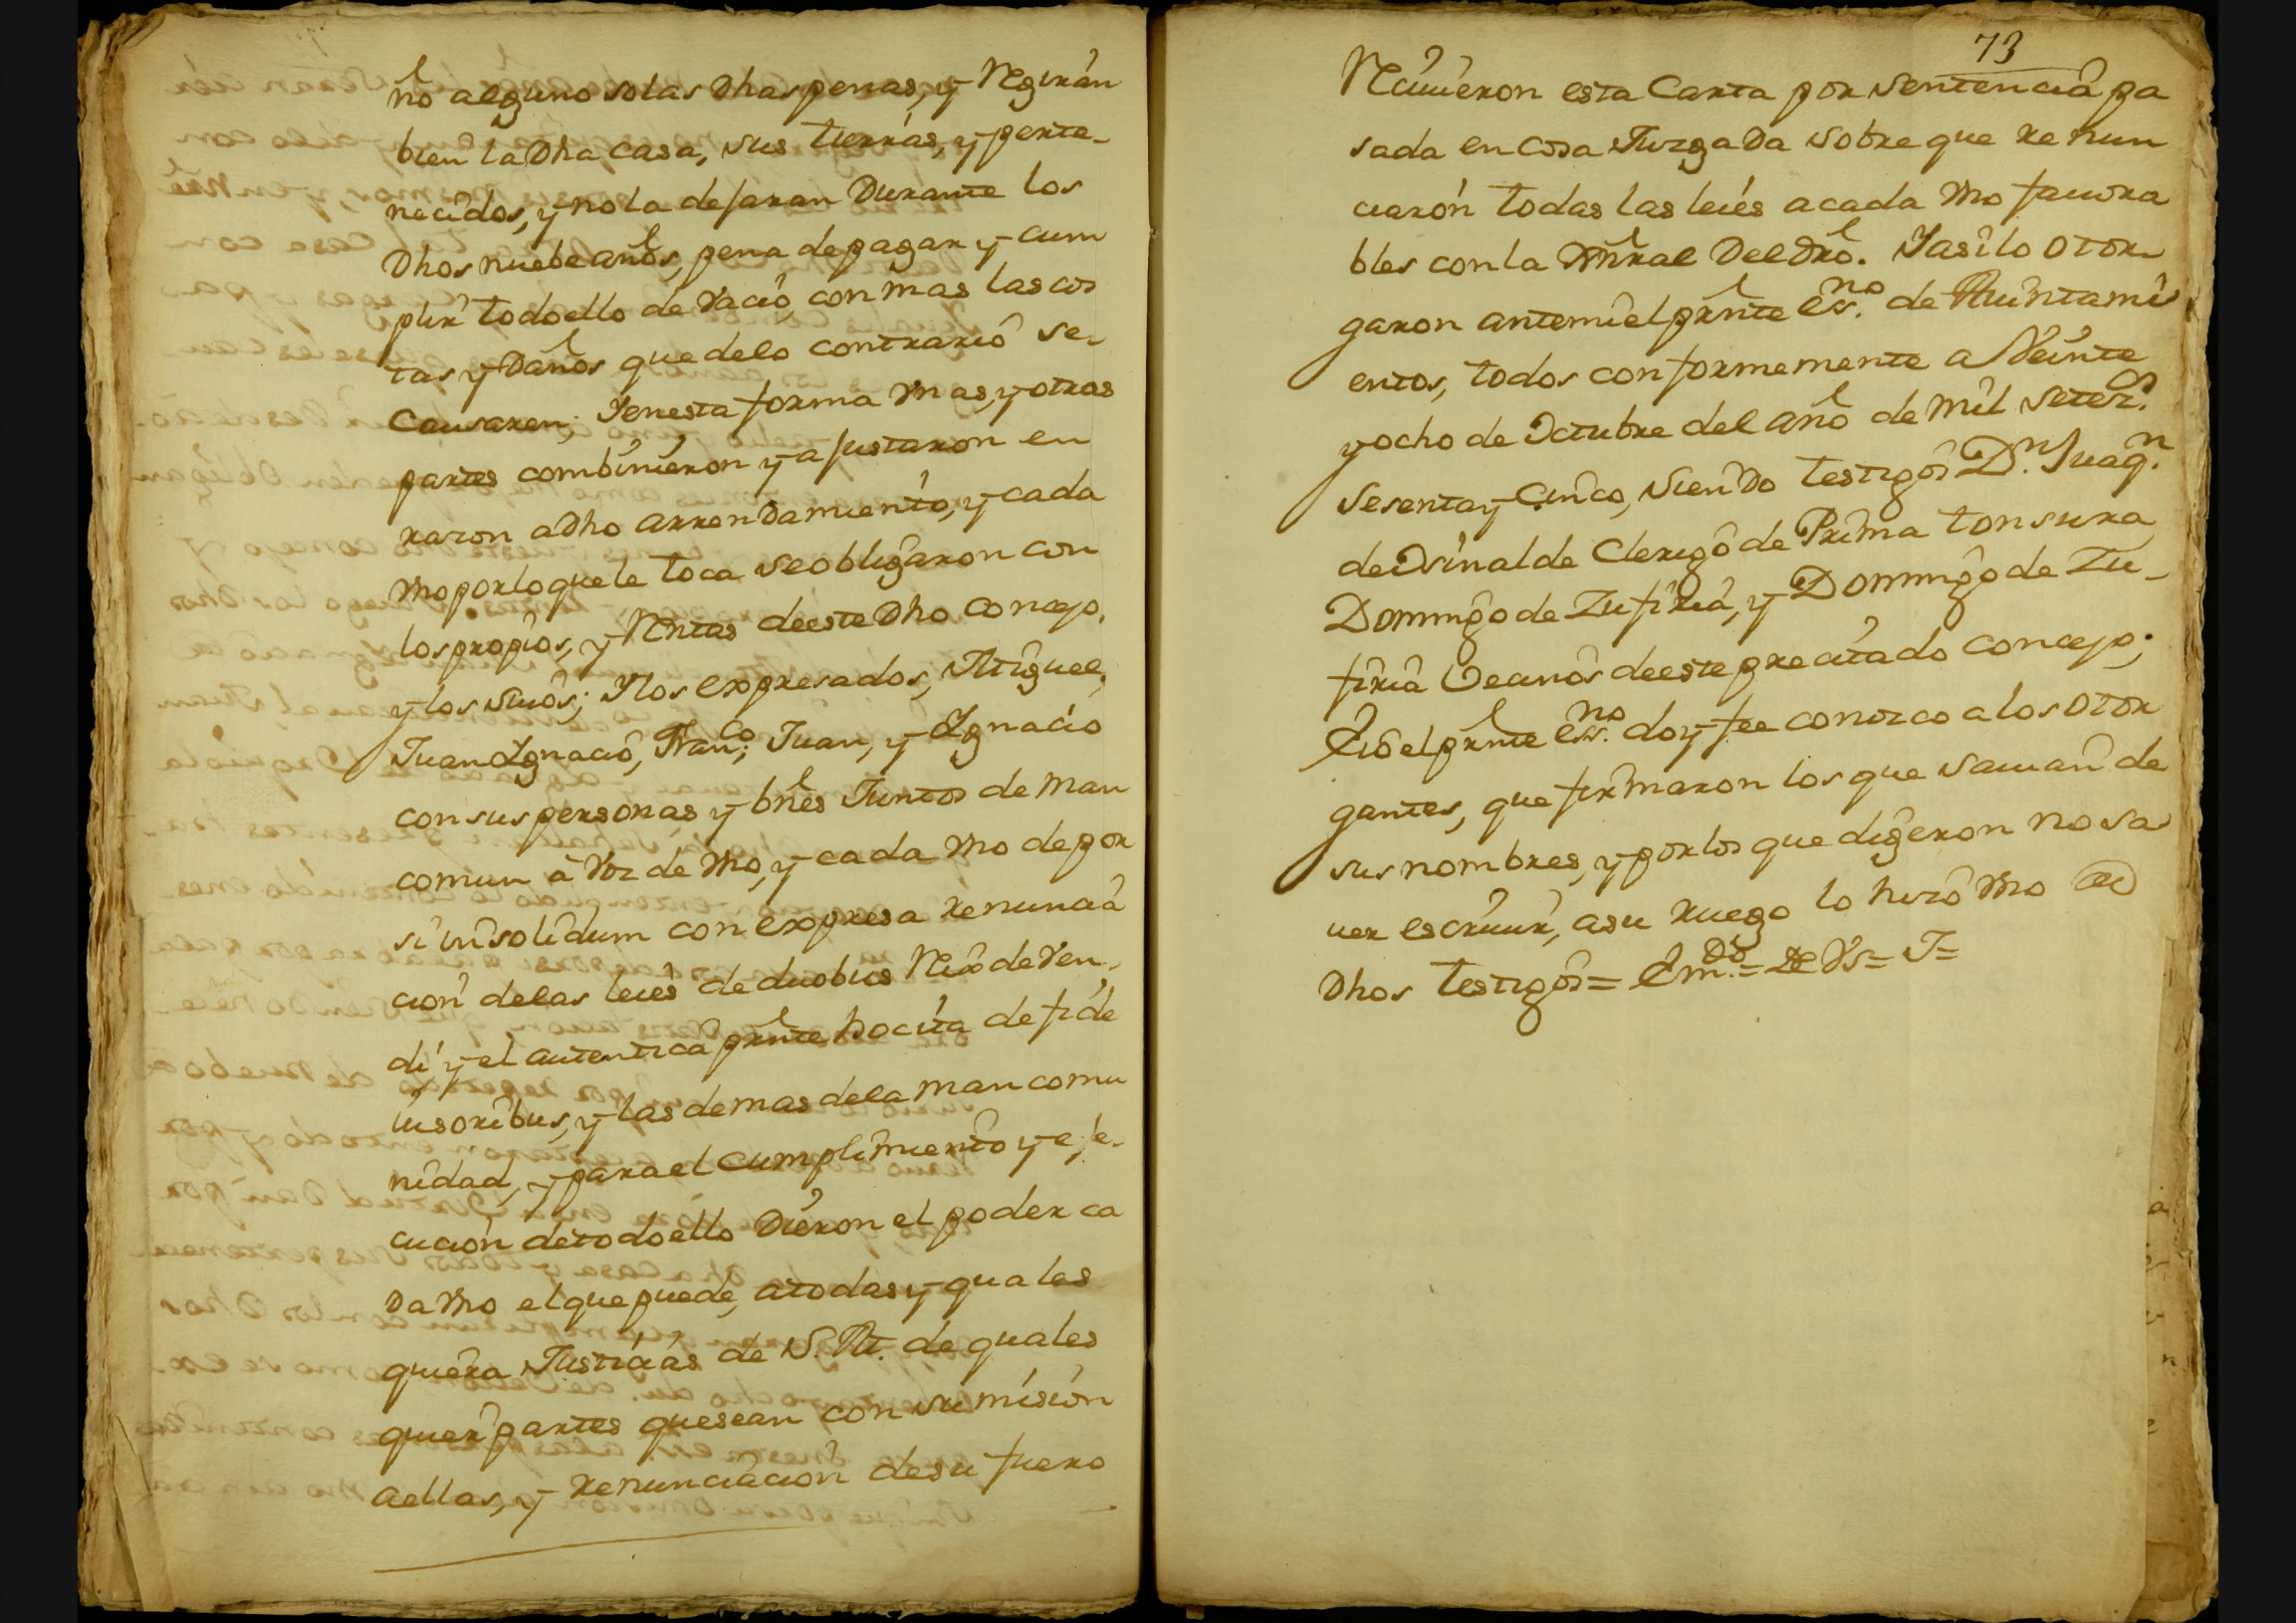 nō alguno so las Dhas penas, y Regirán
bien la Dha casa, sus tierras, y perte-
necidos, y no la dejaran Durante los
Dhos nuebe años, pena de pagar y cum
plir todo ello de vacio, con mas las cos
tas y Daños que delo contrario se-
Causaren; Yenesta forma Vnas, y otras
partes combinieron y a justaron en
razon a Dho arrendamiento, y cada
Vno por lo que le toca se obligaron con
los propios, y Rentas de este Dho Concejo,
y los suios; Ylos Expresados, Miguel,
Juan Ygnacio, Franco; Juan, y Ygnacio
con sus personas y bnēs Juntos de Man
comun à Voz de Vno, y cada Vno de por
si insolidum con expresa renuncia
cion de las leies de duobus Reis de Ven,
di y el autentica prnte hocita de fide
iusoribus, y las demas dela Man comu
nidad, y para el Cumplimiento y eje-
cucion de todo ello Dieron el poder ca
Da Vno el que puede, a todas y quales
quiera Justicias de S. M. de quales
quier partes que sean con su mision
aellas, y renunciacion de su fuero
73
Reciuieron esta Carta por Sentencia pa
sada en cosa Juzgada sobre que renun
ciaron todas las leies a cada Vno fauora
bles con la Gnral Del Dro. Y asi lo otor-
garon antemi el prnte Es.no de Quintami
entos, todos conformemente a Veinte
y ocho de Octubre del año de Mil Setez.s
Sesenta y Cinco, siendo testigos D.n Juaq.n
de Osinalde Clerigo de Prima tonsura,
Domingo de Zufiria, y Domingo de Zu-
firia Vecinos de este precitado Concejo;
E io el prnte Es.no doy fee conozco a los otor
gantes, que firmaron los que sauian de
sus nombres, y por los que digeron no sa
uer escriuir, a su ruego lo hizo Vno de
Dhos testigos = Em.do = Vs = J =